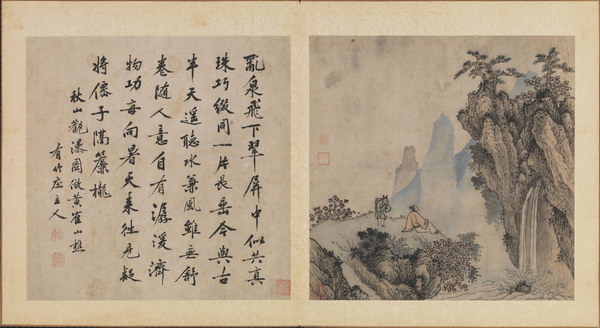 亂泉飛下翠屏中似共真
珠巧綴同一片長垂今與古
半天遥聽水兼風雖無舒
卷隨人意自有潺湲濟
物功每向暑天来往見疑
將僊子隔簾櫳
秋山觀瀑圖倣黄隺山樵
有竹庄主人